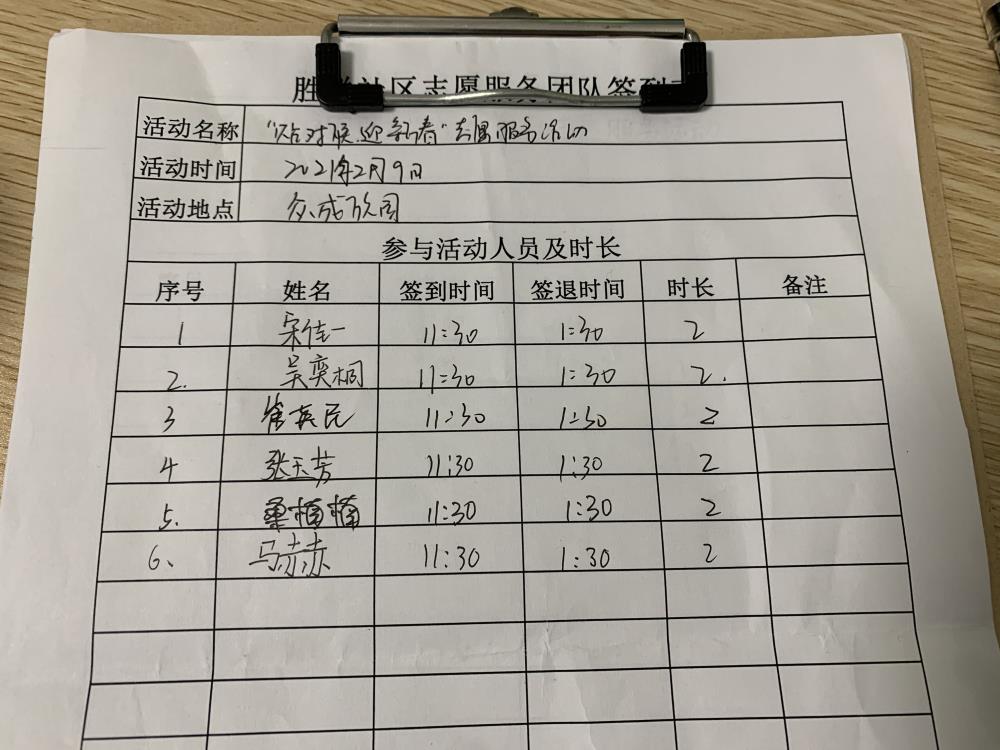 胜 社区志愿服务团队签到
活动名称 "贴对联迎新春"志愿服务活动
活动时间 2021年2月9日
活动地点 众成欣园
参与活动人员及时长
序号 姓名 签到时间 签退时间 时长 备注
1 宋佳一 11:30 1:30 2
2. 吴奕桐 11:30 1:30 2.
3 崔英民 11:30 1:30 2
4 张玉芳 11:30 1:30 2
5. 桑楠楠 11:30 1:30 2
6、 马赤赤 11:30 1:30 2